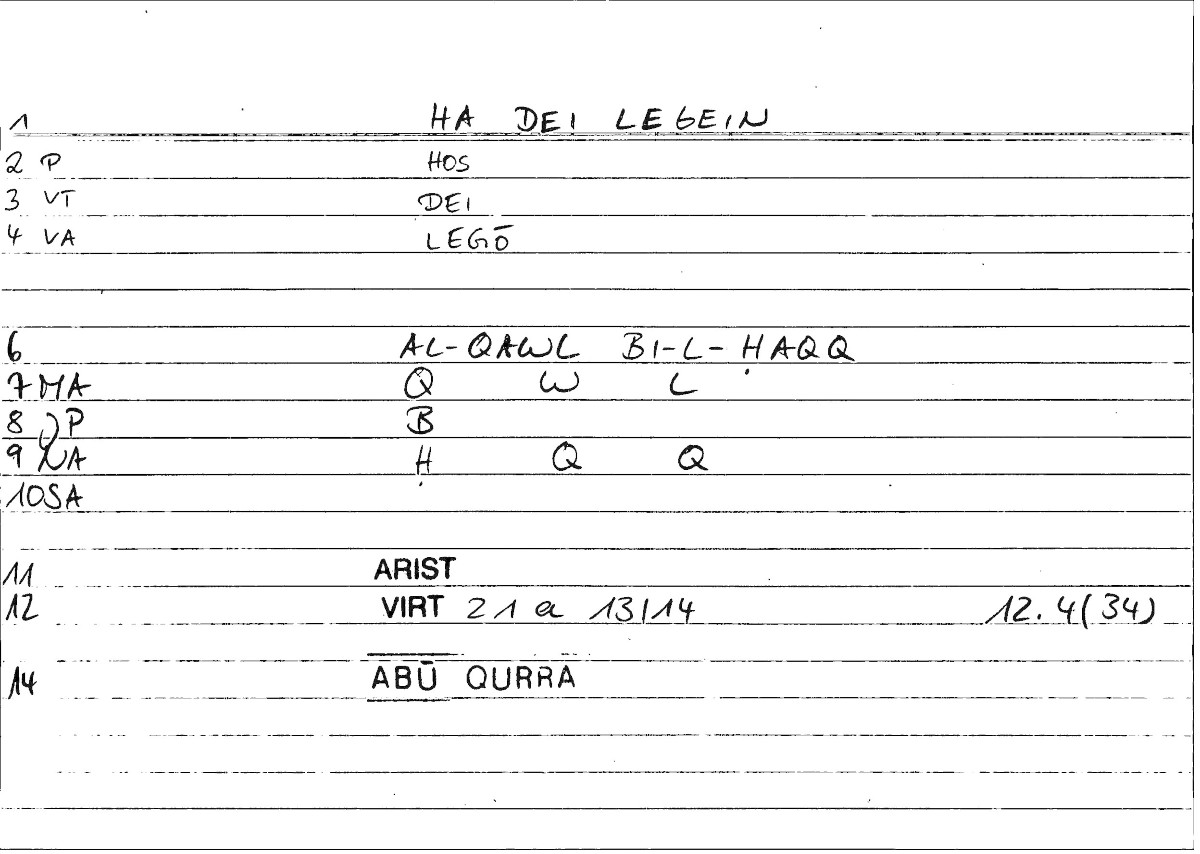 1 HA DEI LEGEIN
2 P HOS
3 VT DEI
4 VA LEGŌ
6 AL-QAWL BI-L-ḤAQQ
7 MA Q W L
8 P B
9 NA Ḥ Q Q
10 SA
11 ARIST
12 VIRT 21 a 13/14 12.4(34)
14 ABŪ QURRA